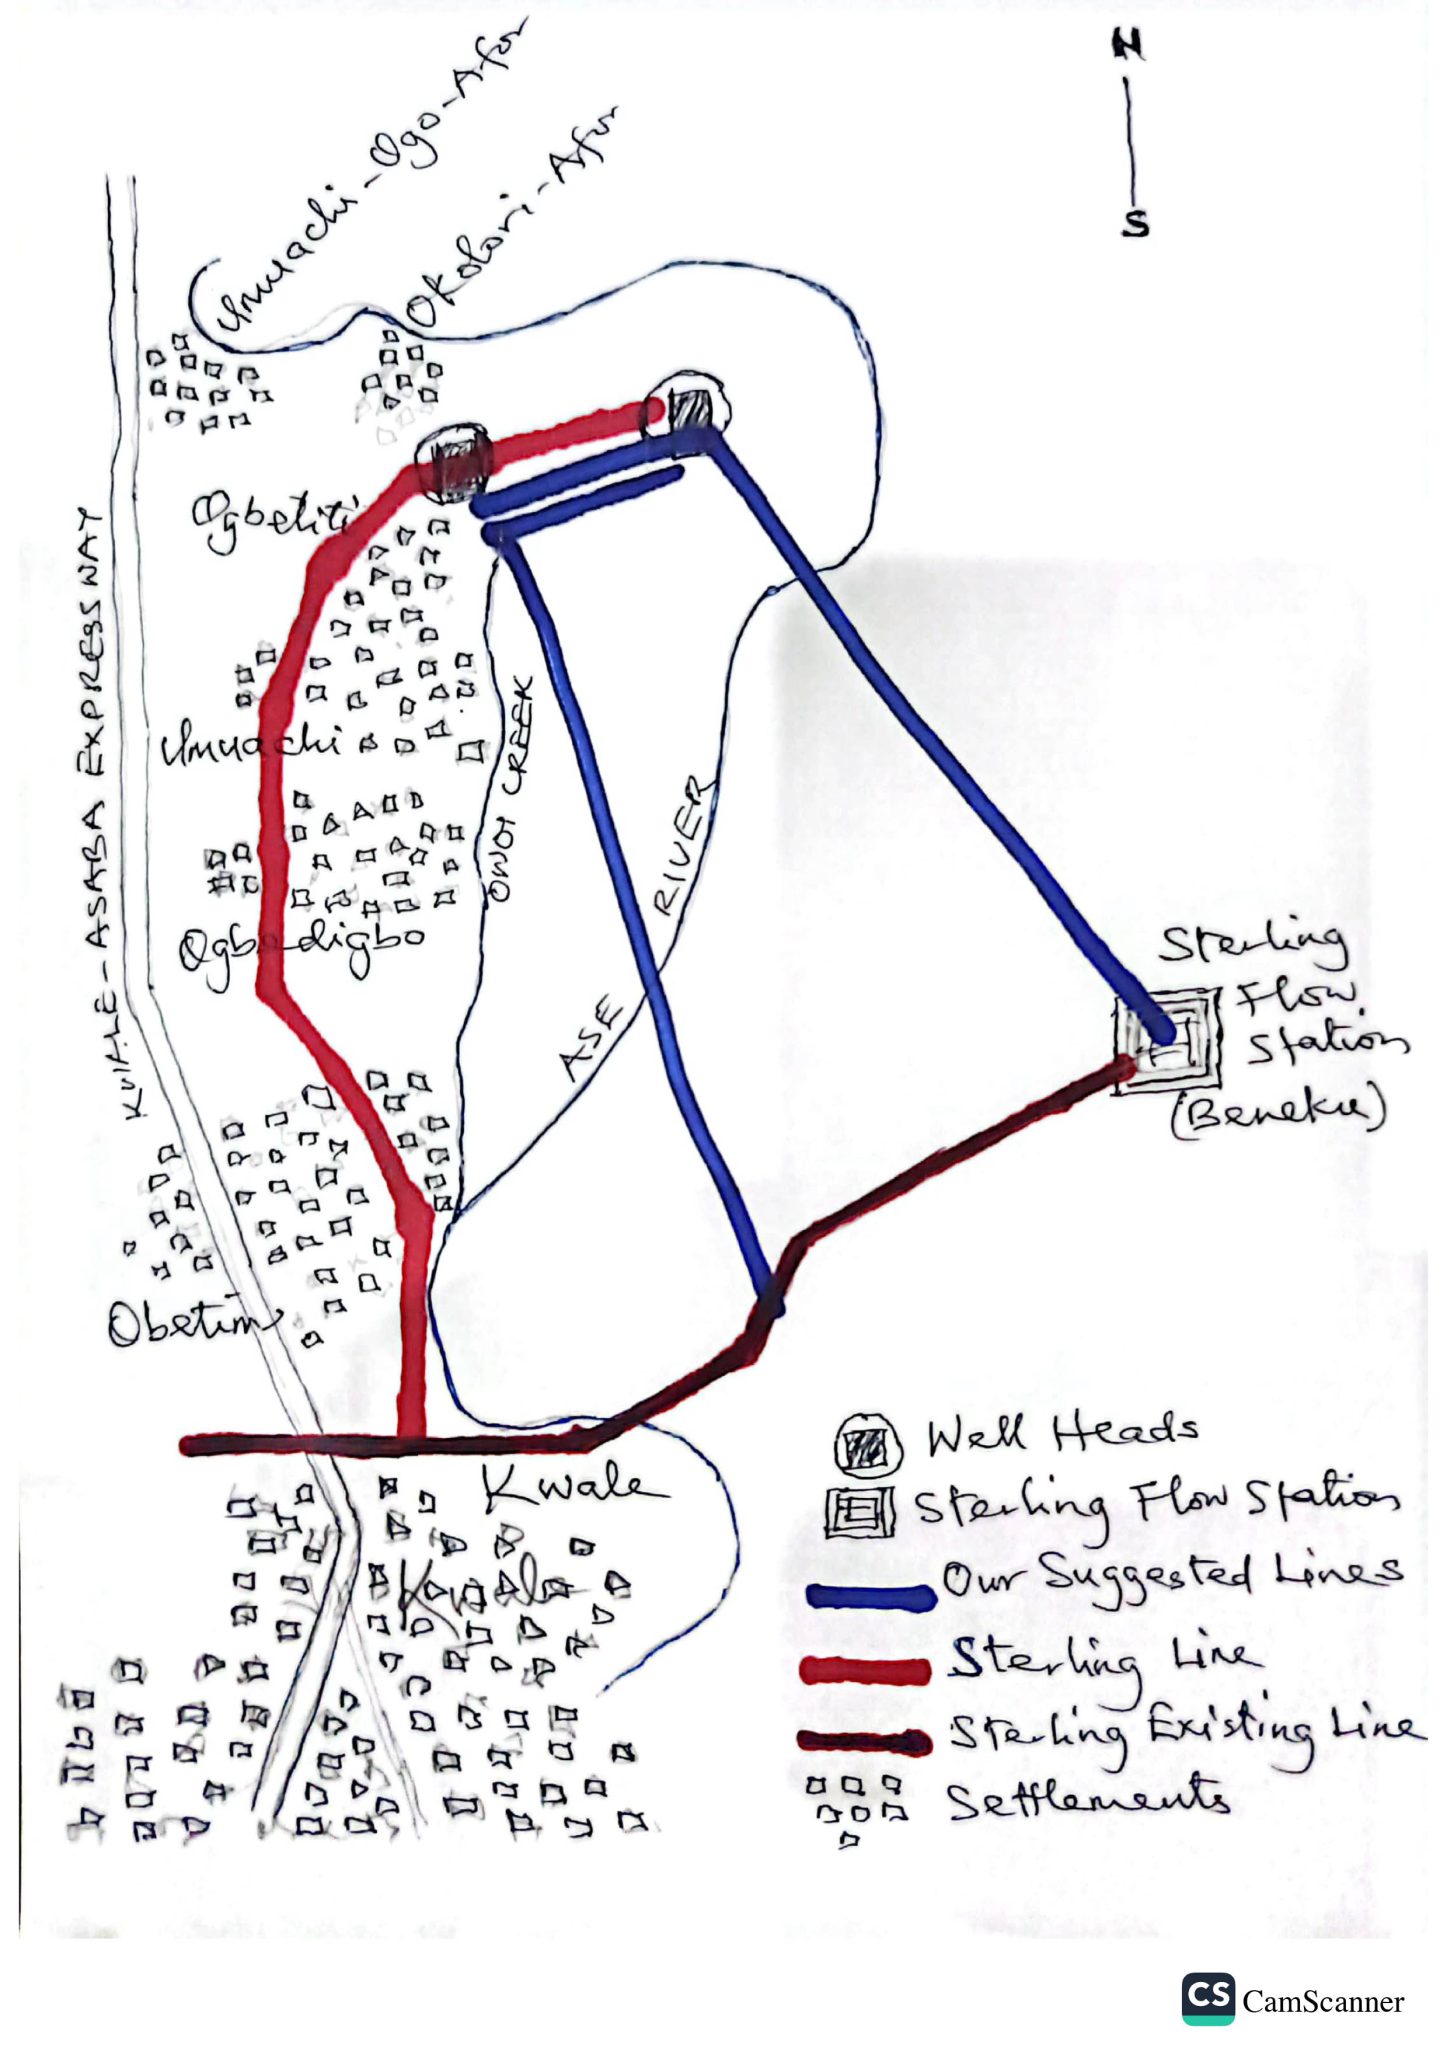 N
S
Umuachi-Ogo-Afor
Okolori-Afor
Ogbetiti
Umuachi
Ogbedigbo
Obetim
KWALE-ASABA EXPRESSWAY
OWOI CREEK
ASE RIVER
Sterling
Flow
Station
(Beneku)
Kwale
Well Heads
Sterling Flow Station
Our Suggested Lines
Sterling Line
Sterling Existing Line
Settlements
CS CamScanner